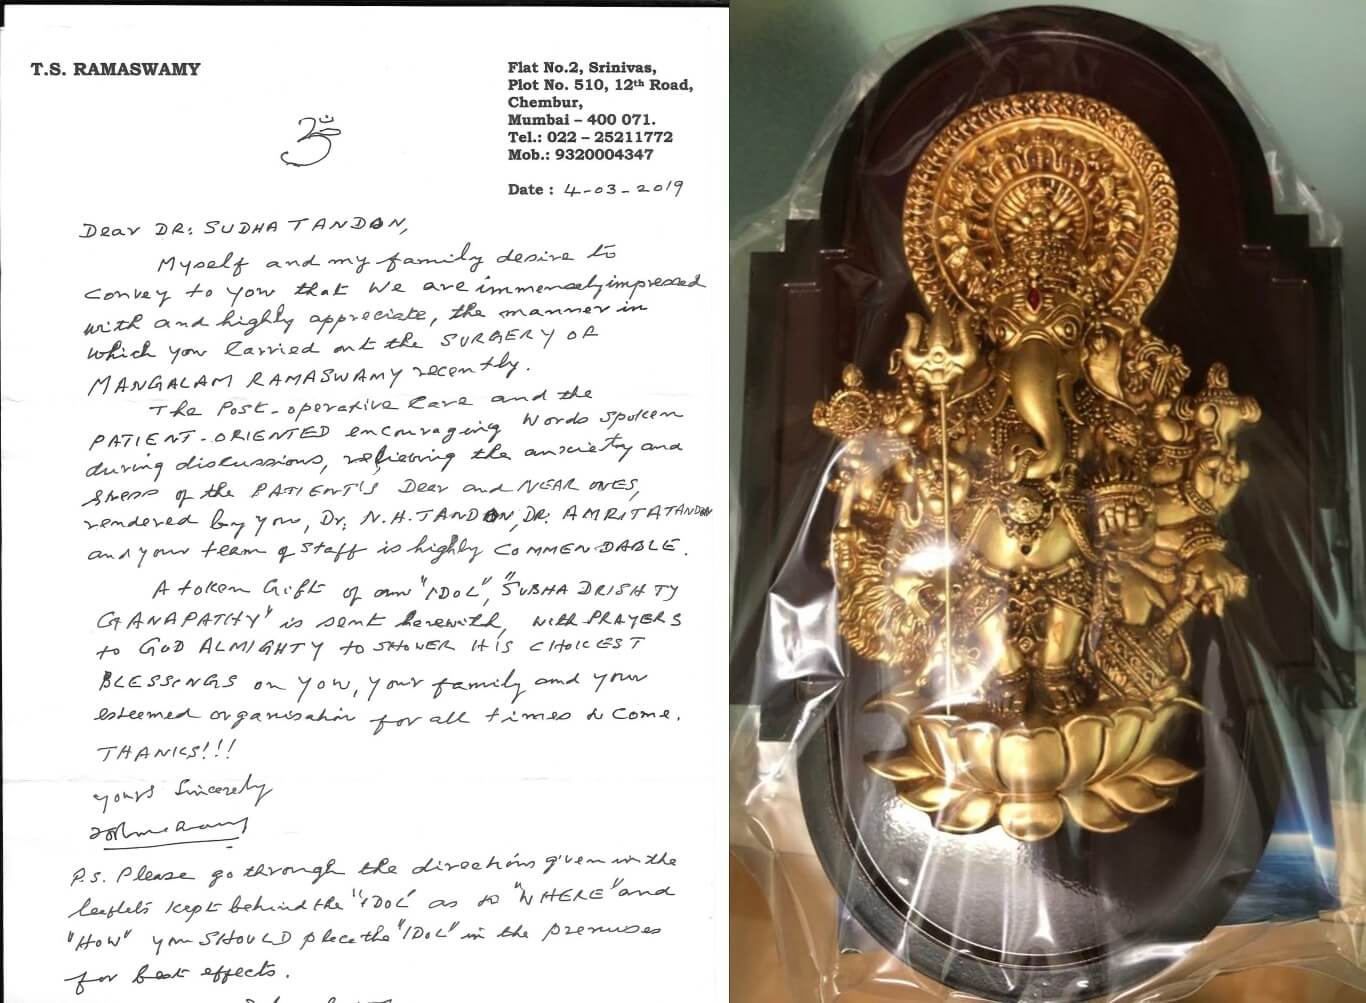 T.S. RAMASWAMY
Flat No.2, Srinivas,
Plot No. 510, 12th Road,
Chembur,
Mumbai – 400 071.
Tel.: 022 – 25211772
Mob.: 9320004347
ॐ
Date : 4-03-2019
Dear DR: SUDHA TANDON,
Myself and my family desire to
convey to you that we are immensely impressed
with and highly appreciate, the manner in
which you carried out the SURGERY OF
MANGALAM RAMASWAMY recently.
The Post-operative Care and the
PATIENT-ORIENTED encouraging words spoken
during discussions, relieving the anxiety and
stress of the PATIENT'S Dear and NEAR ONES,
rendered by you, Dr. N.H. TANDON, DR. AMRITA TANDON
and your team of staff is highly COMMENDABLE.
A token Gift of an "IDOL", "SUBHA DRISHTY
GANAPATHY" is sent herewith, with PRAYERS
to GOD ALMIGHTY to SHOWER HIS CHOICEST
BLESSINGS on you, your family and your
esteemed organisation for all times to come.
THANKS!!!
yours Sincerely
P.S. Please go through the directions given in the
leaflets kept behind the "IDOL" as to "WHERE" and
"HOW" you SHOULD place the "IDOL" in the premises
for best effects.